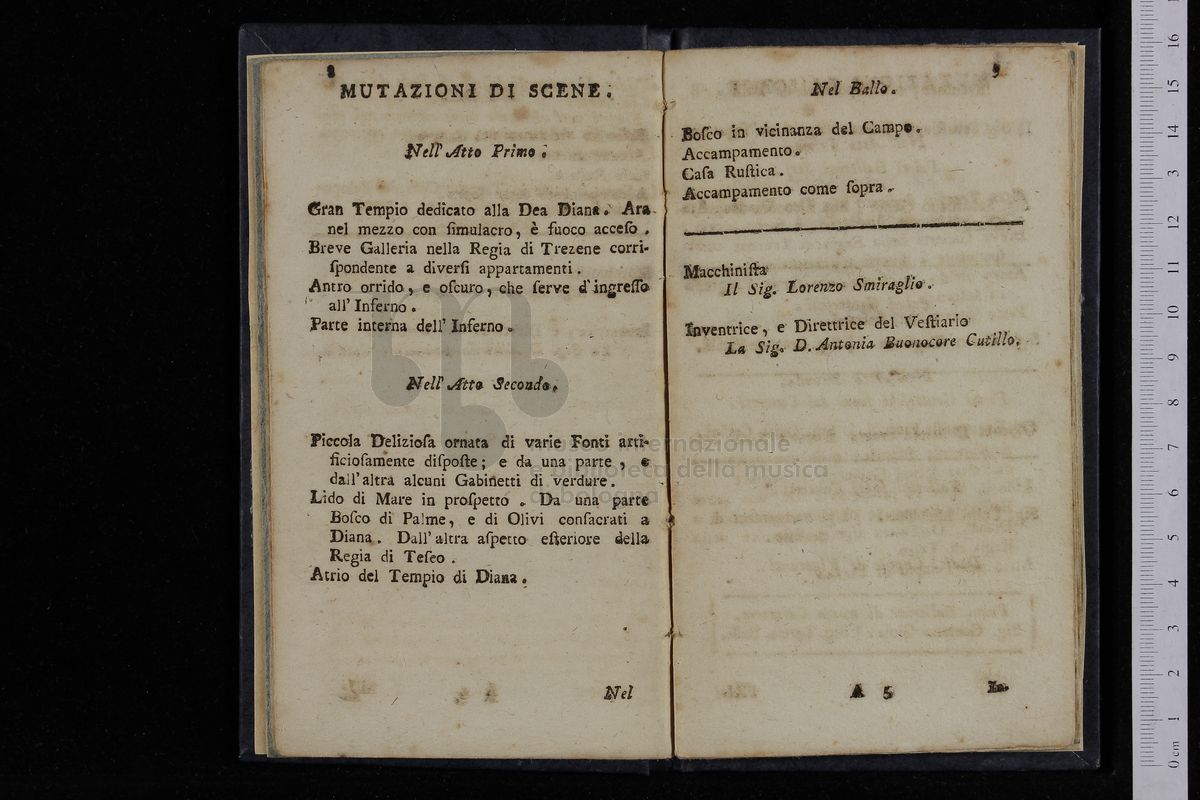 8
MUTAZIONI DI SCENE.
Nell' Atto Primo.
Gran Tempio dedicato alla Dea Diana. Ara
nel mezzo con ſimulacro, è fuoco acceſo.
Breve Galleria nella Regia di Trezene corri-
ſpondente a diverſi appartamenti.
Antro orrido, e oſcuro, che ſerve d'ingreſſo
all' Inferno.
Parte interna dell' Inferno.
Nell' Atto Secondo.
Piccola Delizioſa ornata di varie Fonti arti-
ficioſamente diſpoſte; e da una parte, e
dall'altra alcuni Gabinetti di verdure.
Lido di Mare in proſpetto. Da una parte
Boſco di Palme, e di Olivi conſacrati a
Diana. Dall'altra aſpetto eſteriore della
Regia di Teſeo.
Atrio del Tempio di Diana.
Nel
9
Nel Ballo.
Boſco in vicinanza del Campo.
Accampamento.
Caſa Ruſtica.
Accampamento come ſopra.
Macchiniſta
Il Sig. Lorenzo Smiraglio.
Inventrice, e Direttrice del Veſtiario
La Sig. D. Antonia Buonocore Cutillo.
A 5
In-
museo internazionale
e biblioteca della musica
di bologna
0 cm 1 2 3 4 5 6 7 8 9 10 11 12 13 14 15 16